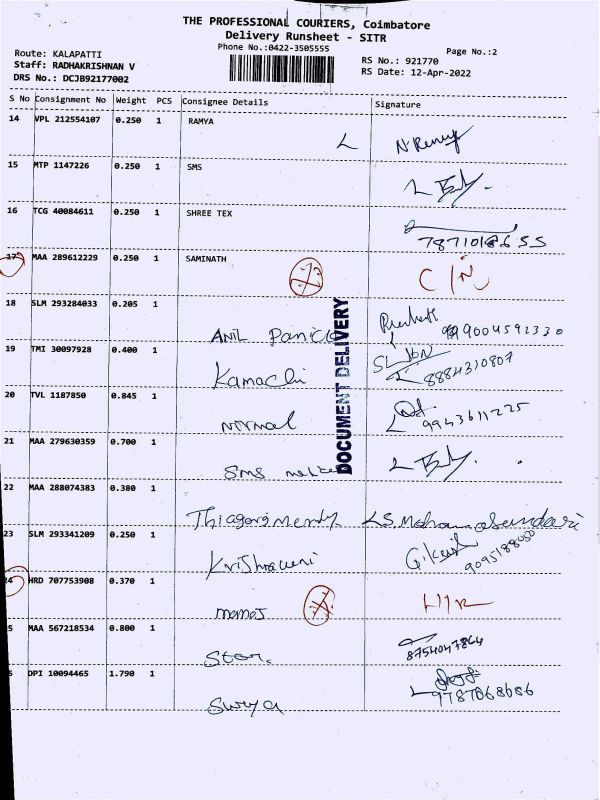 THE PROFESSIONAL COURIERS, Coimbatore
Delivery Runsheet - SITR
Phone No.:0422-3505555
Page No.:2
Route: KALAPATTI
Staff: RADHAKRISHNAN V
DRS No.: DCJB92177002
RS No.: 921770
RS Date: 12-Apr-2022
S No Consignment No Weight PCS Consignee Details Signature
14 VPL 212554107 0.250 1 RAMYA
15 MTP 1147226 0.250 1 SMS
16 TCG 40084611 0.250 1 SHREE TEX
17 MAA 289612229 0.250 1 SAMINATH
18 SLM 293284033 0.205 1 ANIL
19 TMI 30097928 0.400 1 Kamachi 8884310807
20 TVL 1187850 0.845 1 Nirmal 9943611225
21 MAA 279630359 0.700 1 Sms
22 MAA 288074383 0.380 1
23 SLM 293341209 0.250 1 Krishnaveni
24 HRD 707753908 0.370 1
5 MAA 567218534 0.800 1 Star. 8754047864
DPI 10094465 1.790 1 Surya 9787068686
DOCUMENT DELIVERY